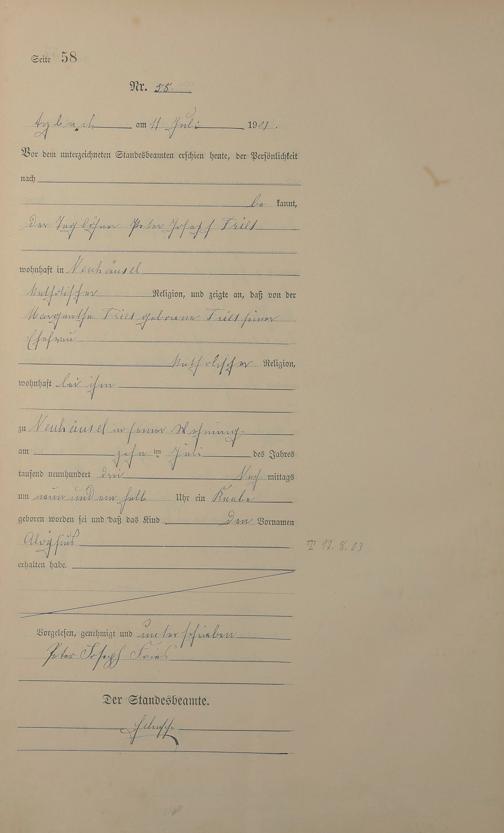 Seite 58
Nr. 58
am 11 Juli 190
Vor dem unterzeichneten Standesbeamten erschien heute, der Persönlichkeit
nach
be kannt,
der Taglöhner Peter Joseph
wohnhaft in Neuhäusel
Katholischer Religion, und zeigte an, daß von der
Margaretha geborene seiner
Ehefrau
Katholischer Religion,
wohnhaft bei ihm
zu Neuhäusel in seiner Wohnung
am zehn ten Juli des Jahres
tausend neunhundert drei Nach mittags
um neun und ein halb Uhr ein Knabe
geboren worden sei und daß das Kind den Vornamen
Aloysius
12.8.03
erhalten habe.
Vorgelesen, genehmigt und unterschrieben
Peter Joseph
Der Standesbeamte.